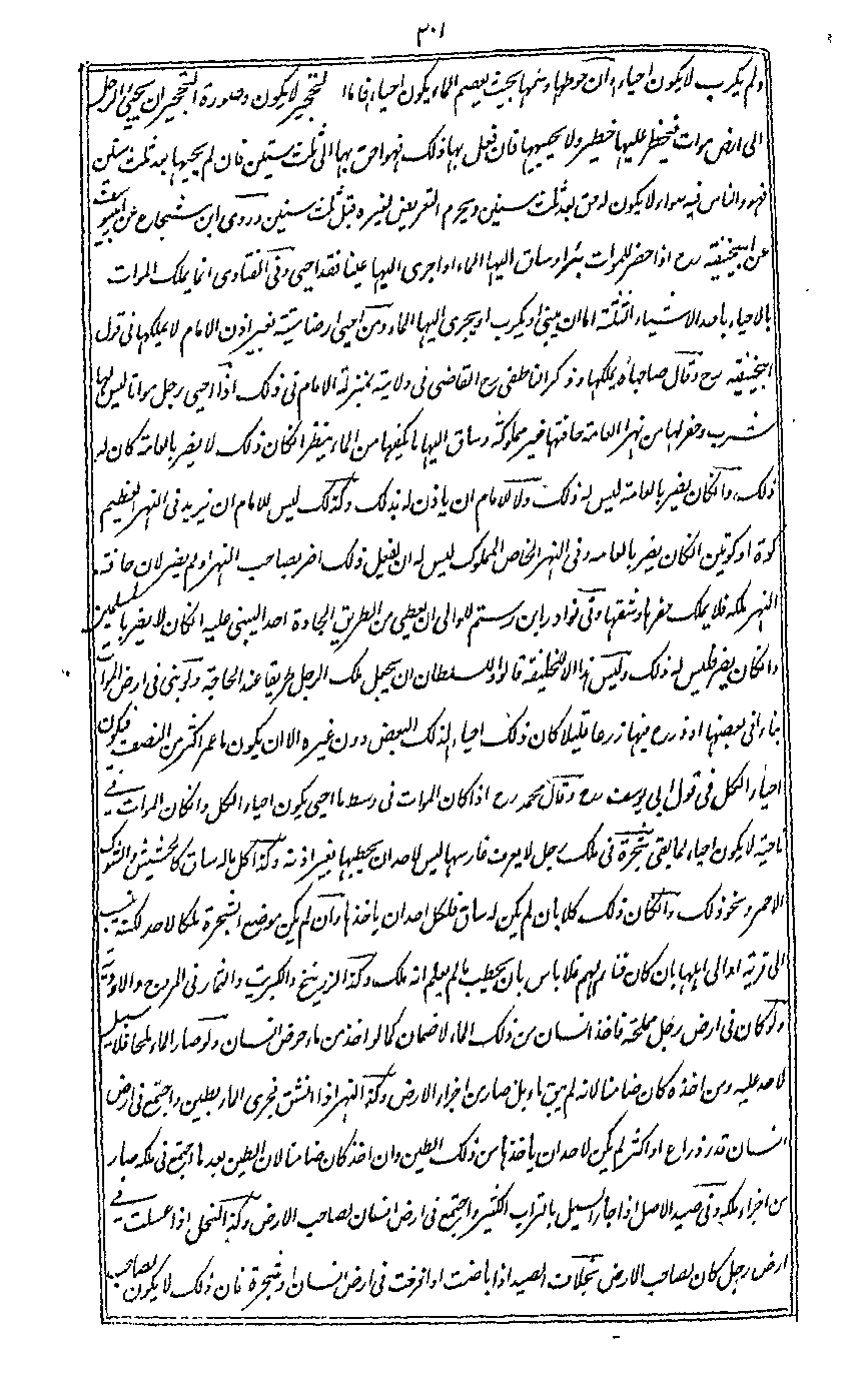 ٣٠١
ولم يكرب لا يكون احياء وان حوطها وسنمها بحيث يعصم الماء يكون احياء فاما التحجير لا يكون وصورة التحجير ان يجيئ الرجل
الى ارض موات فيحظر عليها حظيرة ولا يحييها فان فعل بها ذلك فهو احق بها الى ثلث سنين فان لم يحيها بعد ثلث سنين
فهو والناس فيه سواء ولا يكون له حق بعد ثلث سنين ويحرم التعرض لغيره قبل ثلث سنين وروى ابن شجاع عن ابي يوسف
عن ابيحنيفة رح اذا حفر للموات بئرا وساق اليها الماء او اجرى اليها عينا فقد احيى وفي الفتاوى انما يملك الموات
بالاحياء باحد الاشياء الثلثة اما ان يبني او يكرب او يجرى اليها الماء ومن احيى ارضا ميتة بغير اذن الامام لا يملكها في قول
ابيحنيفة رح وقال صاحباه يملكها وذكر الناطفي رح القاضي في ولايته بمنزلة الامام في ذلك اذا احيى رجل مواتا ليس لها
شرب وحفر لها من نهر العامة حافتها غير مملوكة وساق اليها ما يكفيها من الماء ينظر انكان ذلك لا يضر بالعامة كان له
ذلك وانكان يضر بالعامة ليس له ذلك ولا للامام ان ياذن له بذلك وكذلك ليس للامام ان يزيد في النهر العظيم
كوة او كوتين انكان يضر بالعامه وفي النهر الخاص المملوك ليس له ان يفعل ذلك اضر بصاحب النهر او لم يضر لان حافته
النهر ملكه فلا يملك حفرها وشقها وفي نوادر ابن رستم للوالي ان يعطي من الطريق الجادة احدا ليبني عليه انكان لا يضر بالمسلمين
وانكان يضر فليس له ذلك وليس هذا الا للخليفة قالوا وللسلطان ان يجعل ملك الرجل طريقا عند الحاجة ولو بنى في ارض الموات
بناء في بعضها او زرع فيها زرعا قليلا كان ذلك احياء لذلك البعض دون غيره الا ان يكون ما عمر اكثر من النصف فيكون
احياء الكل في قول ابي يوسف رح وقال محمد رح اذا كان الموات في وسط ما احيى يكون احياء الكل وانكان الموات في
ناحية لا يكون احياء لما بقى شجرة في ملك رجل لا يعرف غارسها ليس لاحد ان يحطبها بغير اذنه وكذا كل ماله ساق كالحشيش والشوك
الاحمر ونحو ذلك وانكان ذلك كلا بان لم يكن له ساق فلكل احد ان ياخذها وان لم يكن موضع الشجرة ملكا لاحد لكنه ينسب
الى قرية او الى اهلها بان كان لهم فلا باس بان يحطب ما لم يعلم انه ملك وكذا الزرنيخ والكبريت والثمار في المروج والاودية
ولو كان في ارض رجل مملحة فاخذ انسان من ذلك الماء لا ضمان كما لو اخذ من ماء حوض انسان ولو صار الماء ملحا فلا سبيل
لاحد عليه ومن اخذه كان ضامنا لانه لم يبق ماء بل صار من اجزاء الارض وكذا النهر اذا انشق فجرى الماء بطين واجتمع في ارض
انسان قدر ذراع او اكثر لم يكن لاحد ان ياخذها من ذلك الطين وان اخذ كان ضامنا لان الطين بعد ما اجتمع في ملكه صار
من اجزاء ملكه وفي صيد الاصل اذا جاء السيل بالتراب الكثير واجتمع في ارض انسان لصاحب الارض وكذا النحل اذا عسلت في
ارض رجل كان لصاحب الارض بخلاف الصيد اذا باضت او افرخت في ارض انسان او شجرة فان ذلك لا يكون لصاحب